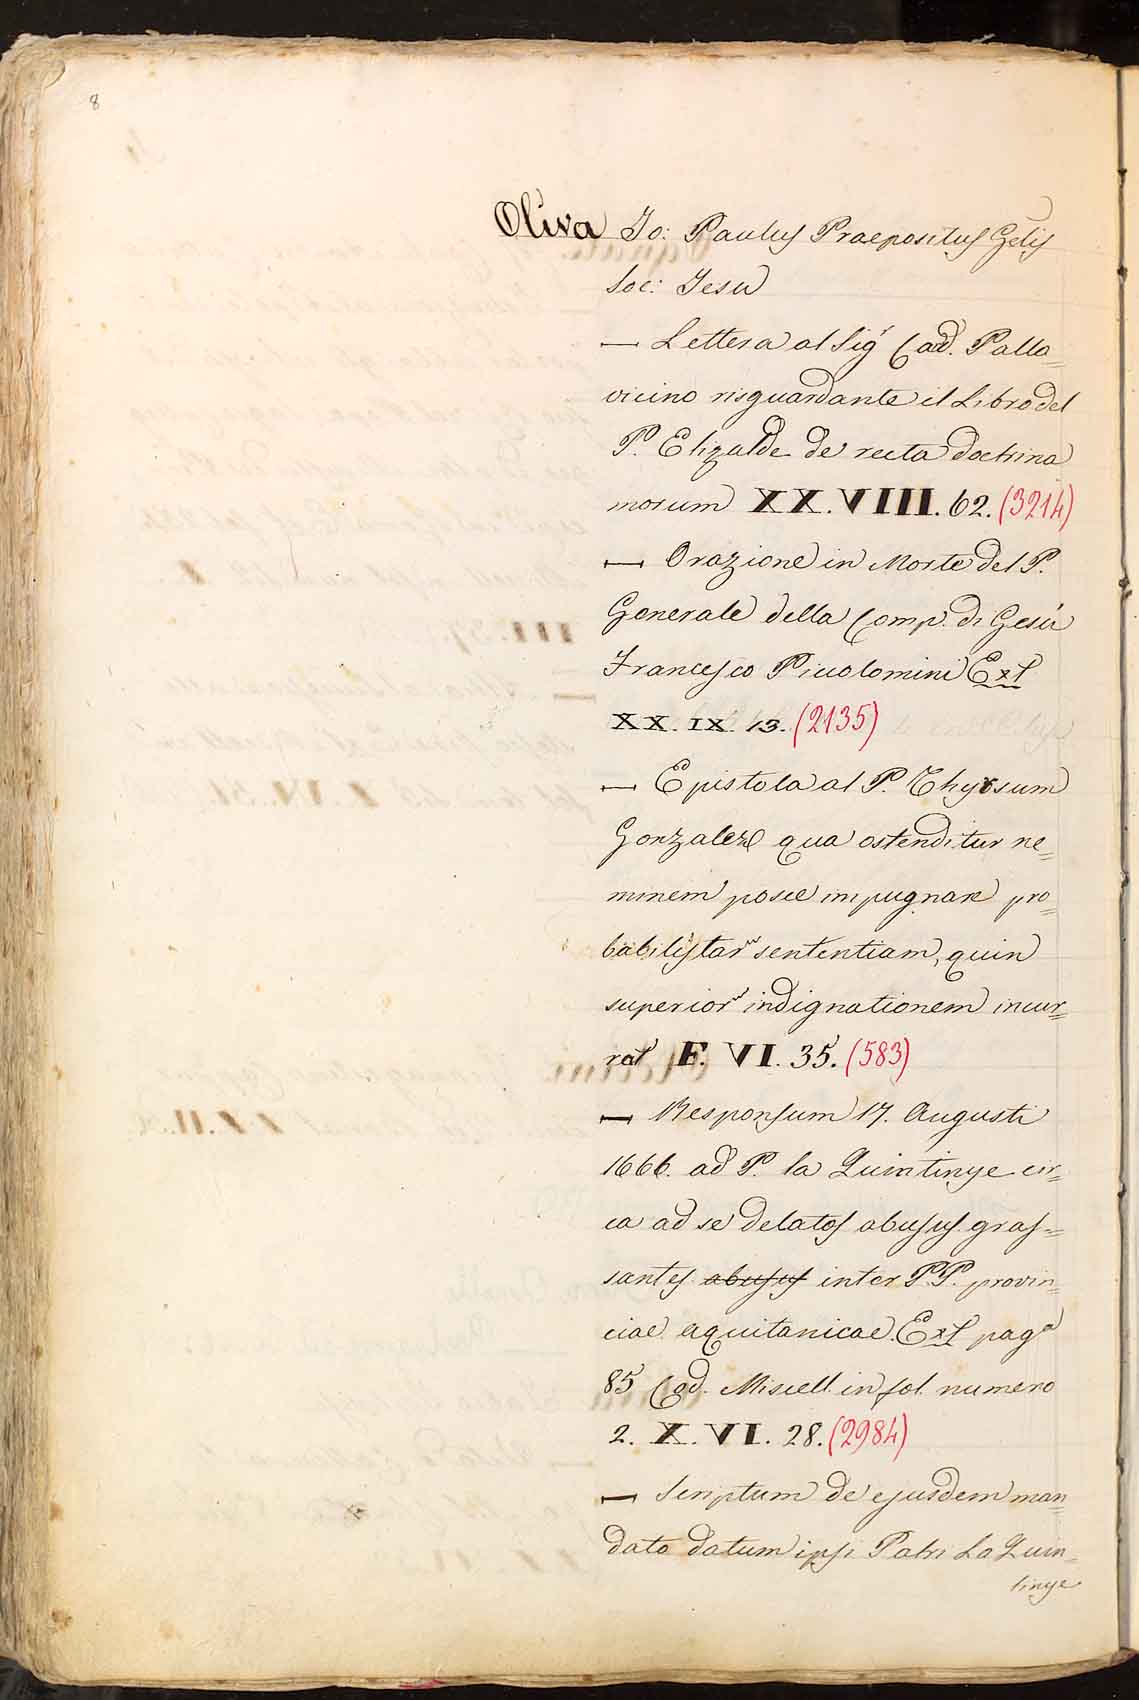 8
Oliva Jo: Paulus Praepositus Gẽlis
Soc: Jesu
— Lettera al Sigr Card. Palla=
vicino risguardante il Libro del
P. Elizalde de recta doctrina
morum XX. VIII. 62. (3214)
— Orazione in Morte del P.
Generale della Comp. di Gesù
Francesco Piccolomini Ext
XX. IX. 13. (2135)
— Epistola al P. Thyrsum
Gonzalez qua ostenditur ne=
minem posse impugnare pro=
babilistarum sententiam, quin
superiorum indignationem incur=
rat F. VI. 35. (583)
— Responsum 17. Augusti
1666. ad P. la Quintinye cir=
ca ad se delatos abusus gras=
santes abusus inter P.P. provin=
ciae aquitanicae. Ext paga
85 Cod. Miscell. in fol. numero
2. X. VI. 28. (2984)
— Scriptum de ejusdem man=
dato datum ipsi Patri La Quin=
tinye